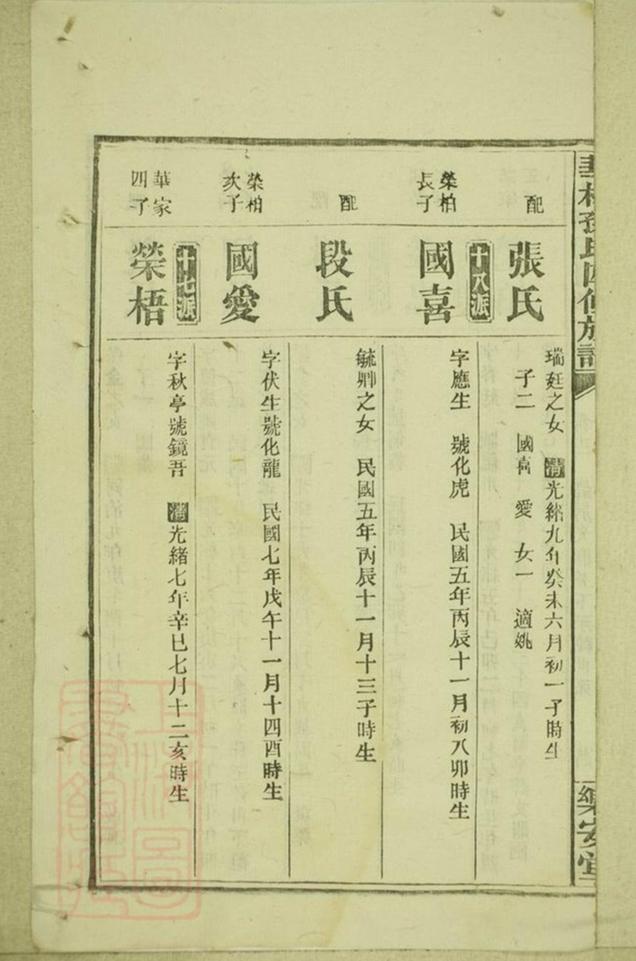 孫氏四修族譜
樂安堂
配
張氏
瑞廷之女 清光緒九年癸未六月初一子時生
子二 國喜 愛 女一 適姚
十八派
榮柏
長子
國喜
字應生 號化虎 民國五年丙辰十一月初八卯時生
配
段氏
毓騂之女 民國五年丙辰十一月十三子時生
榮柏
次子
國愛
字伏生號化龍 民國七年戊午十一月十四酉時生
十七派
華家
四子
榮梧
字秋亭號鏡吾 清光緒七年辛巳七月十二亥時生
上海圖書館藏